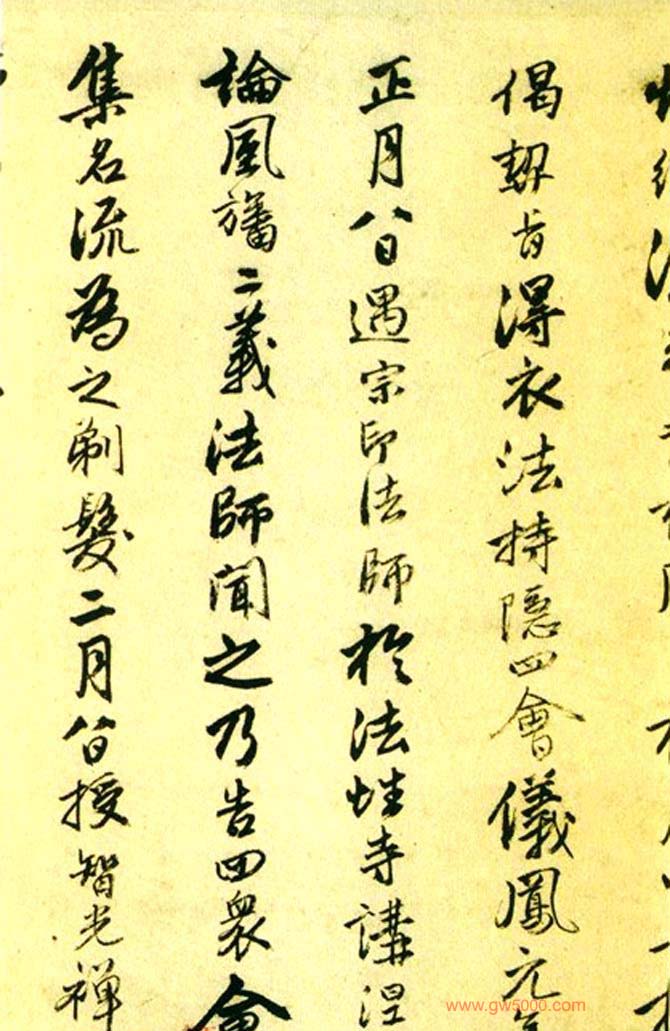 偈契旨得衣法持隱四會儀鳳元年
正月八日遇宗印法師於法性寺講涅
論風旛二義法師聞之乃告四衆會
集名流為之剃髮二月八日授智光禪
www.gw5000.com